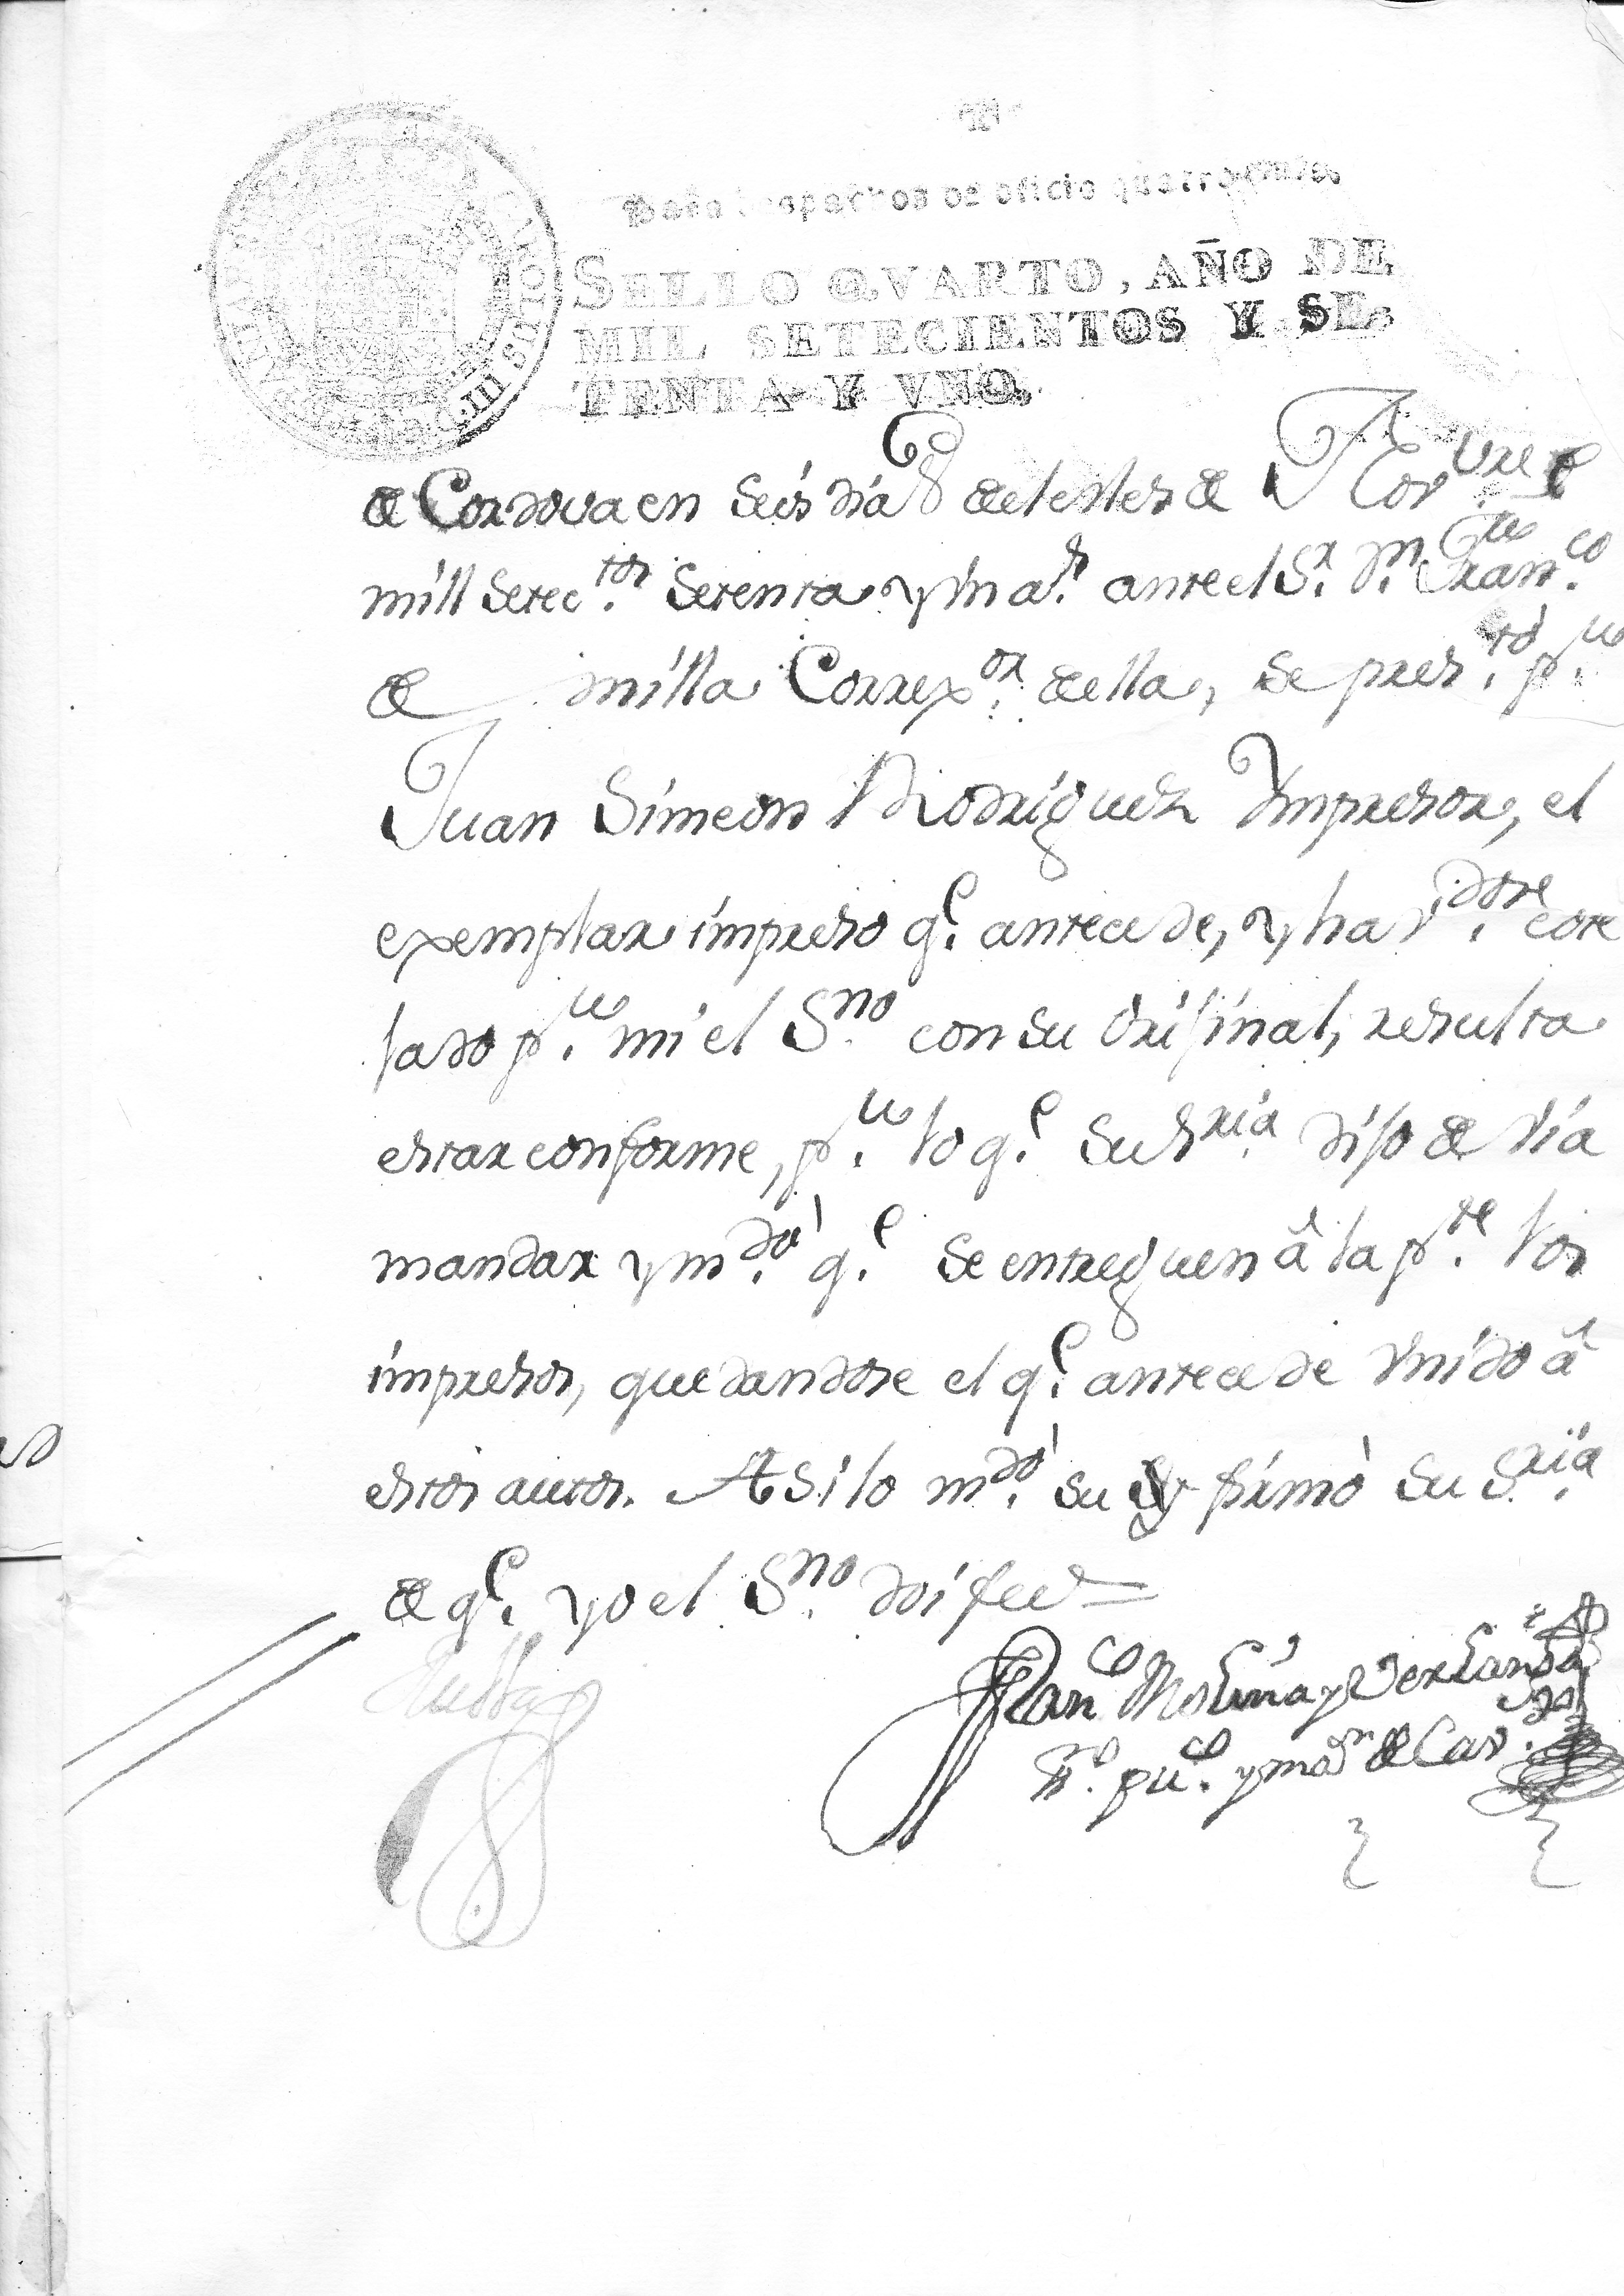 Para despachos de oficio quatro mrs.
SELLO QVARTO, AÑO DE
MIL SETECIENTOS Y SE-
TENTA Y VNO.
CAROLUS III
de Cordova en seis dias del mes de
mill setec.tos setenta y un a.s ante el S.r D.n Fran.co
de milla Correx.or de ella, se pres.tó p.r
Juan Simeon Rodriguez Ympresor, el
exemplar impreso q.e antecede, y hav.dose cote
jado p.r mi el S.no con su orijinal, resulta
estar conforme, p.r lo q.e su S.ria dijo devia
mandar y m.dó q.e se entreguen â la p.te los
impresos, quedandose el q.e antecede vnido â
estos autos. Asi lo m.dó su y firmó su S.ria
de q.e yo el S.no doi fee =
Fran.co Molina y
pu.co y may.r de Cav.do